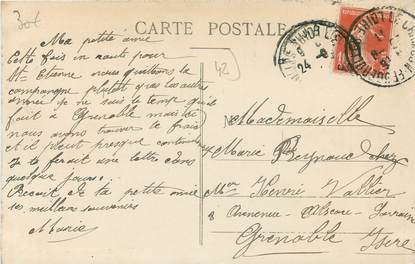 30f
CARTE POSTALE
42
Ma petite amie
Cette fois en route pour
St Etienne nous quittons la
campagne plutôt que les autres
année je ne sais le temps qu'il
fait à Grenoble mais ici
nous avons trouver le frais
et il peut presque continuer
Je te ferait une lettre dans
quelque jours.
Recoit de ta petite amie
ses meilleurs souvenirs
Maria
Mademoiselle
Marie Reynaud chez
Mer Henri Vallier
8 Avenue Alsace Lorraine
Grenoble Isère